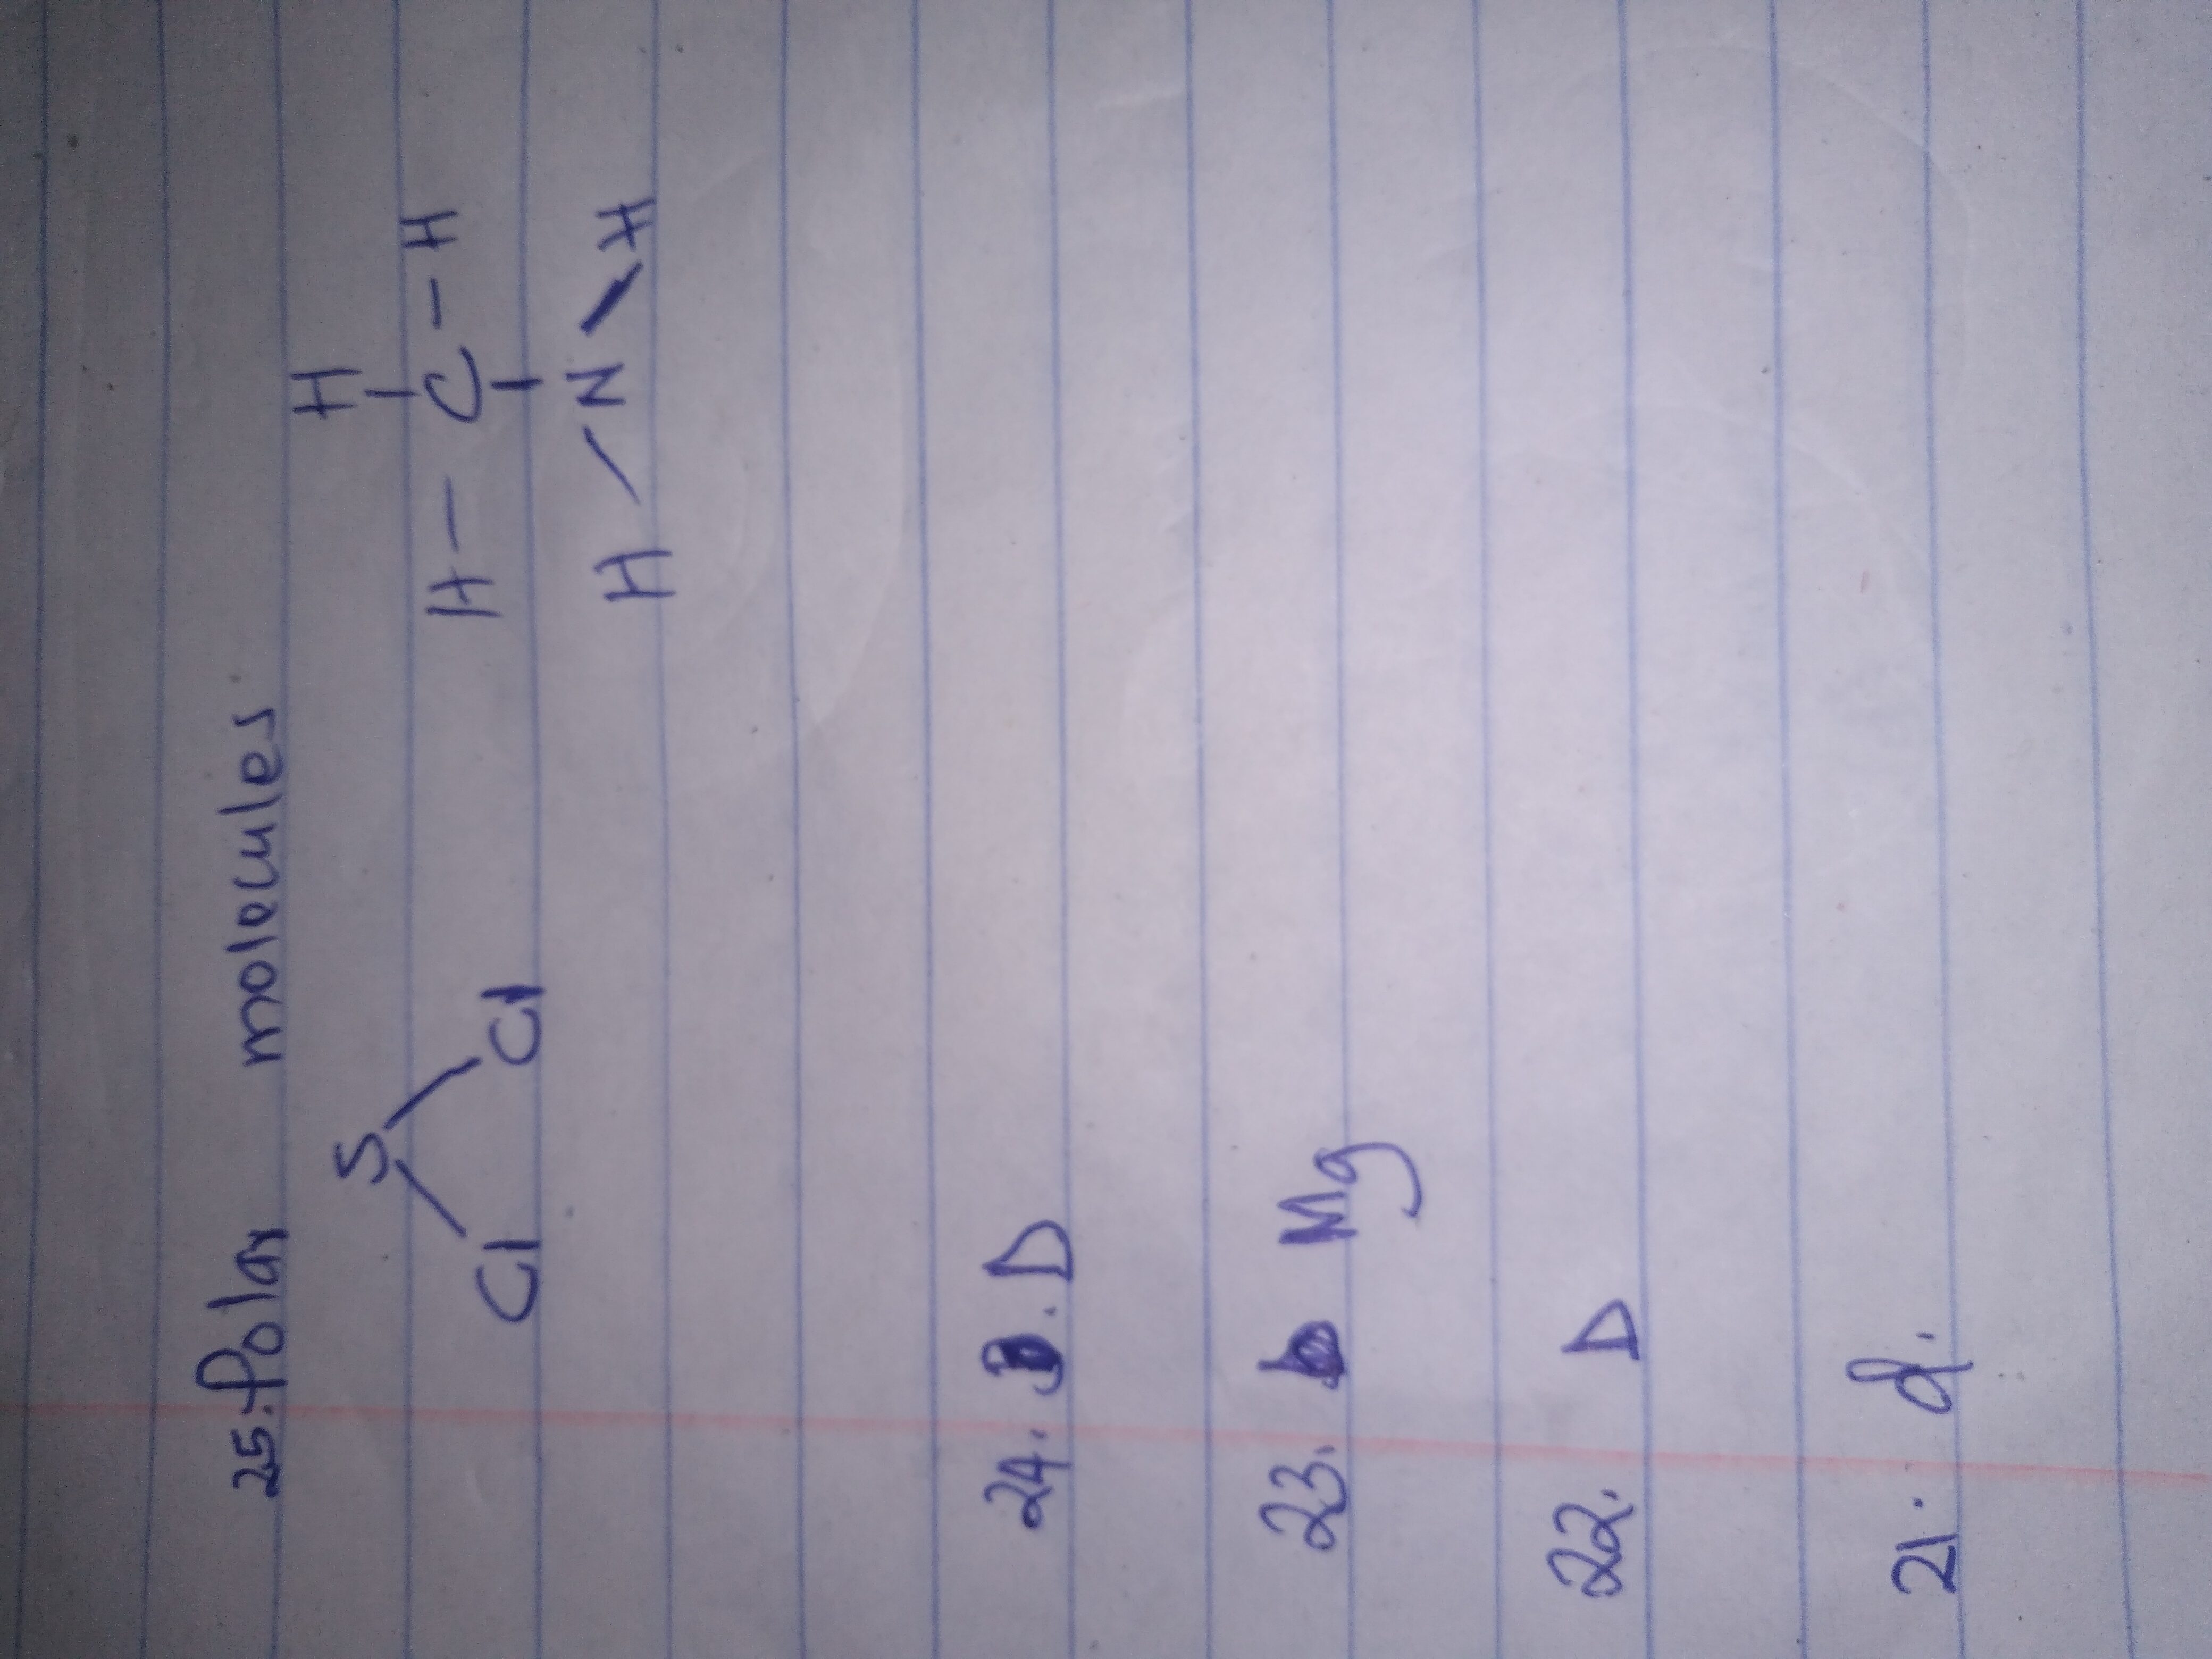 25. Polar molecules
S
Cl Cl
H
H - C - H
H N H
24. D
23. Mg
22. D
21. d.